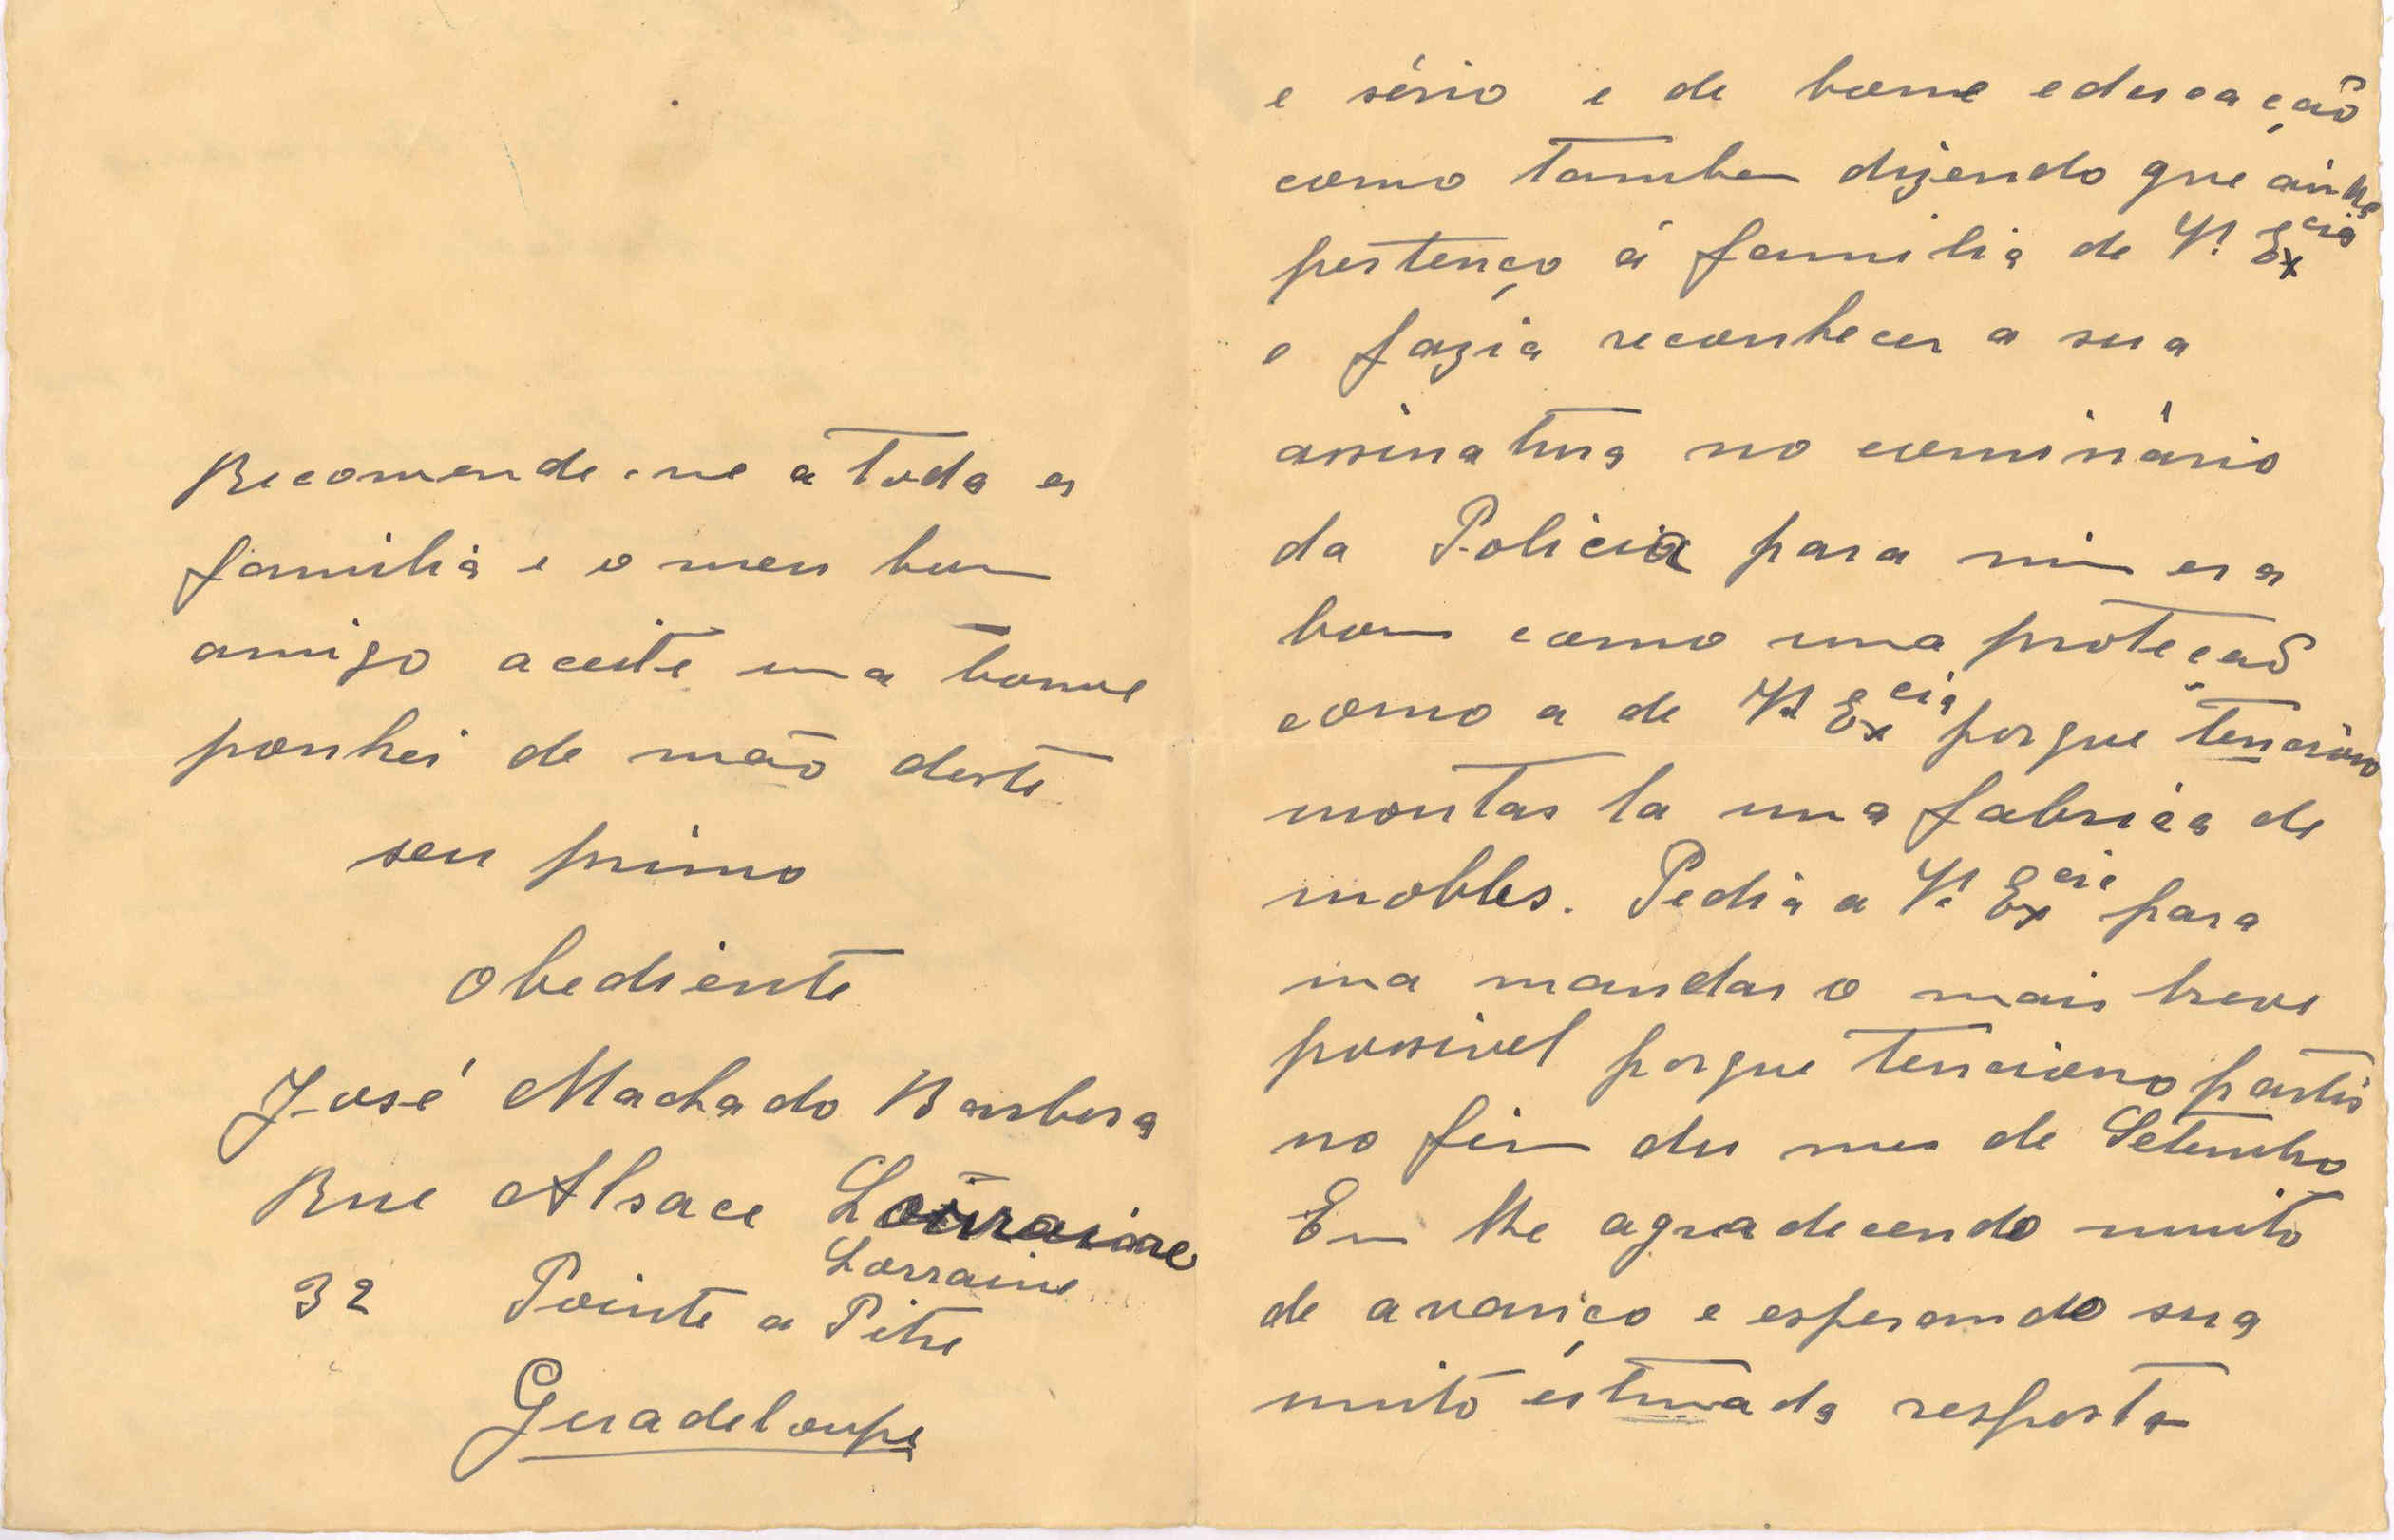 e sério e de bome educação
como tambem dizendo que ainda
pertenço á familia de V. Ex cia
e fazia reconhecer a sua
assinatura no comisário
da Policia para mim era
bom como uma proteção
como a de V. Ex cia porque tenciono
montar la uma fabrica de
mobles. Pedia a V. Ex cia para
ma mandar o mais breve
possivel porque tenciono partir
no fim du mes de Setembro
Em lhe agradecendo muito
de avanço e esperando sua
muito estimada resposta
Recomende-me a toda a
familia e o meu bom
amigo aceite uma bonne
ponhei de mão deste
seu primo
Obediente
José Machado Barbosa
Rue Alsace Lorraine
Lorraine
32 Pointe a Pitre
Guadeloupe